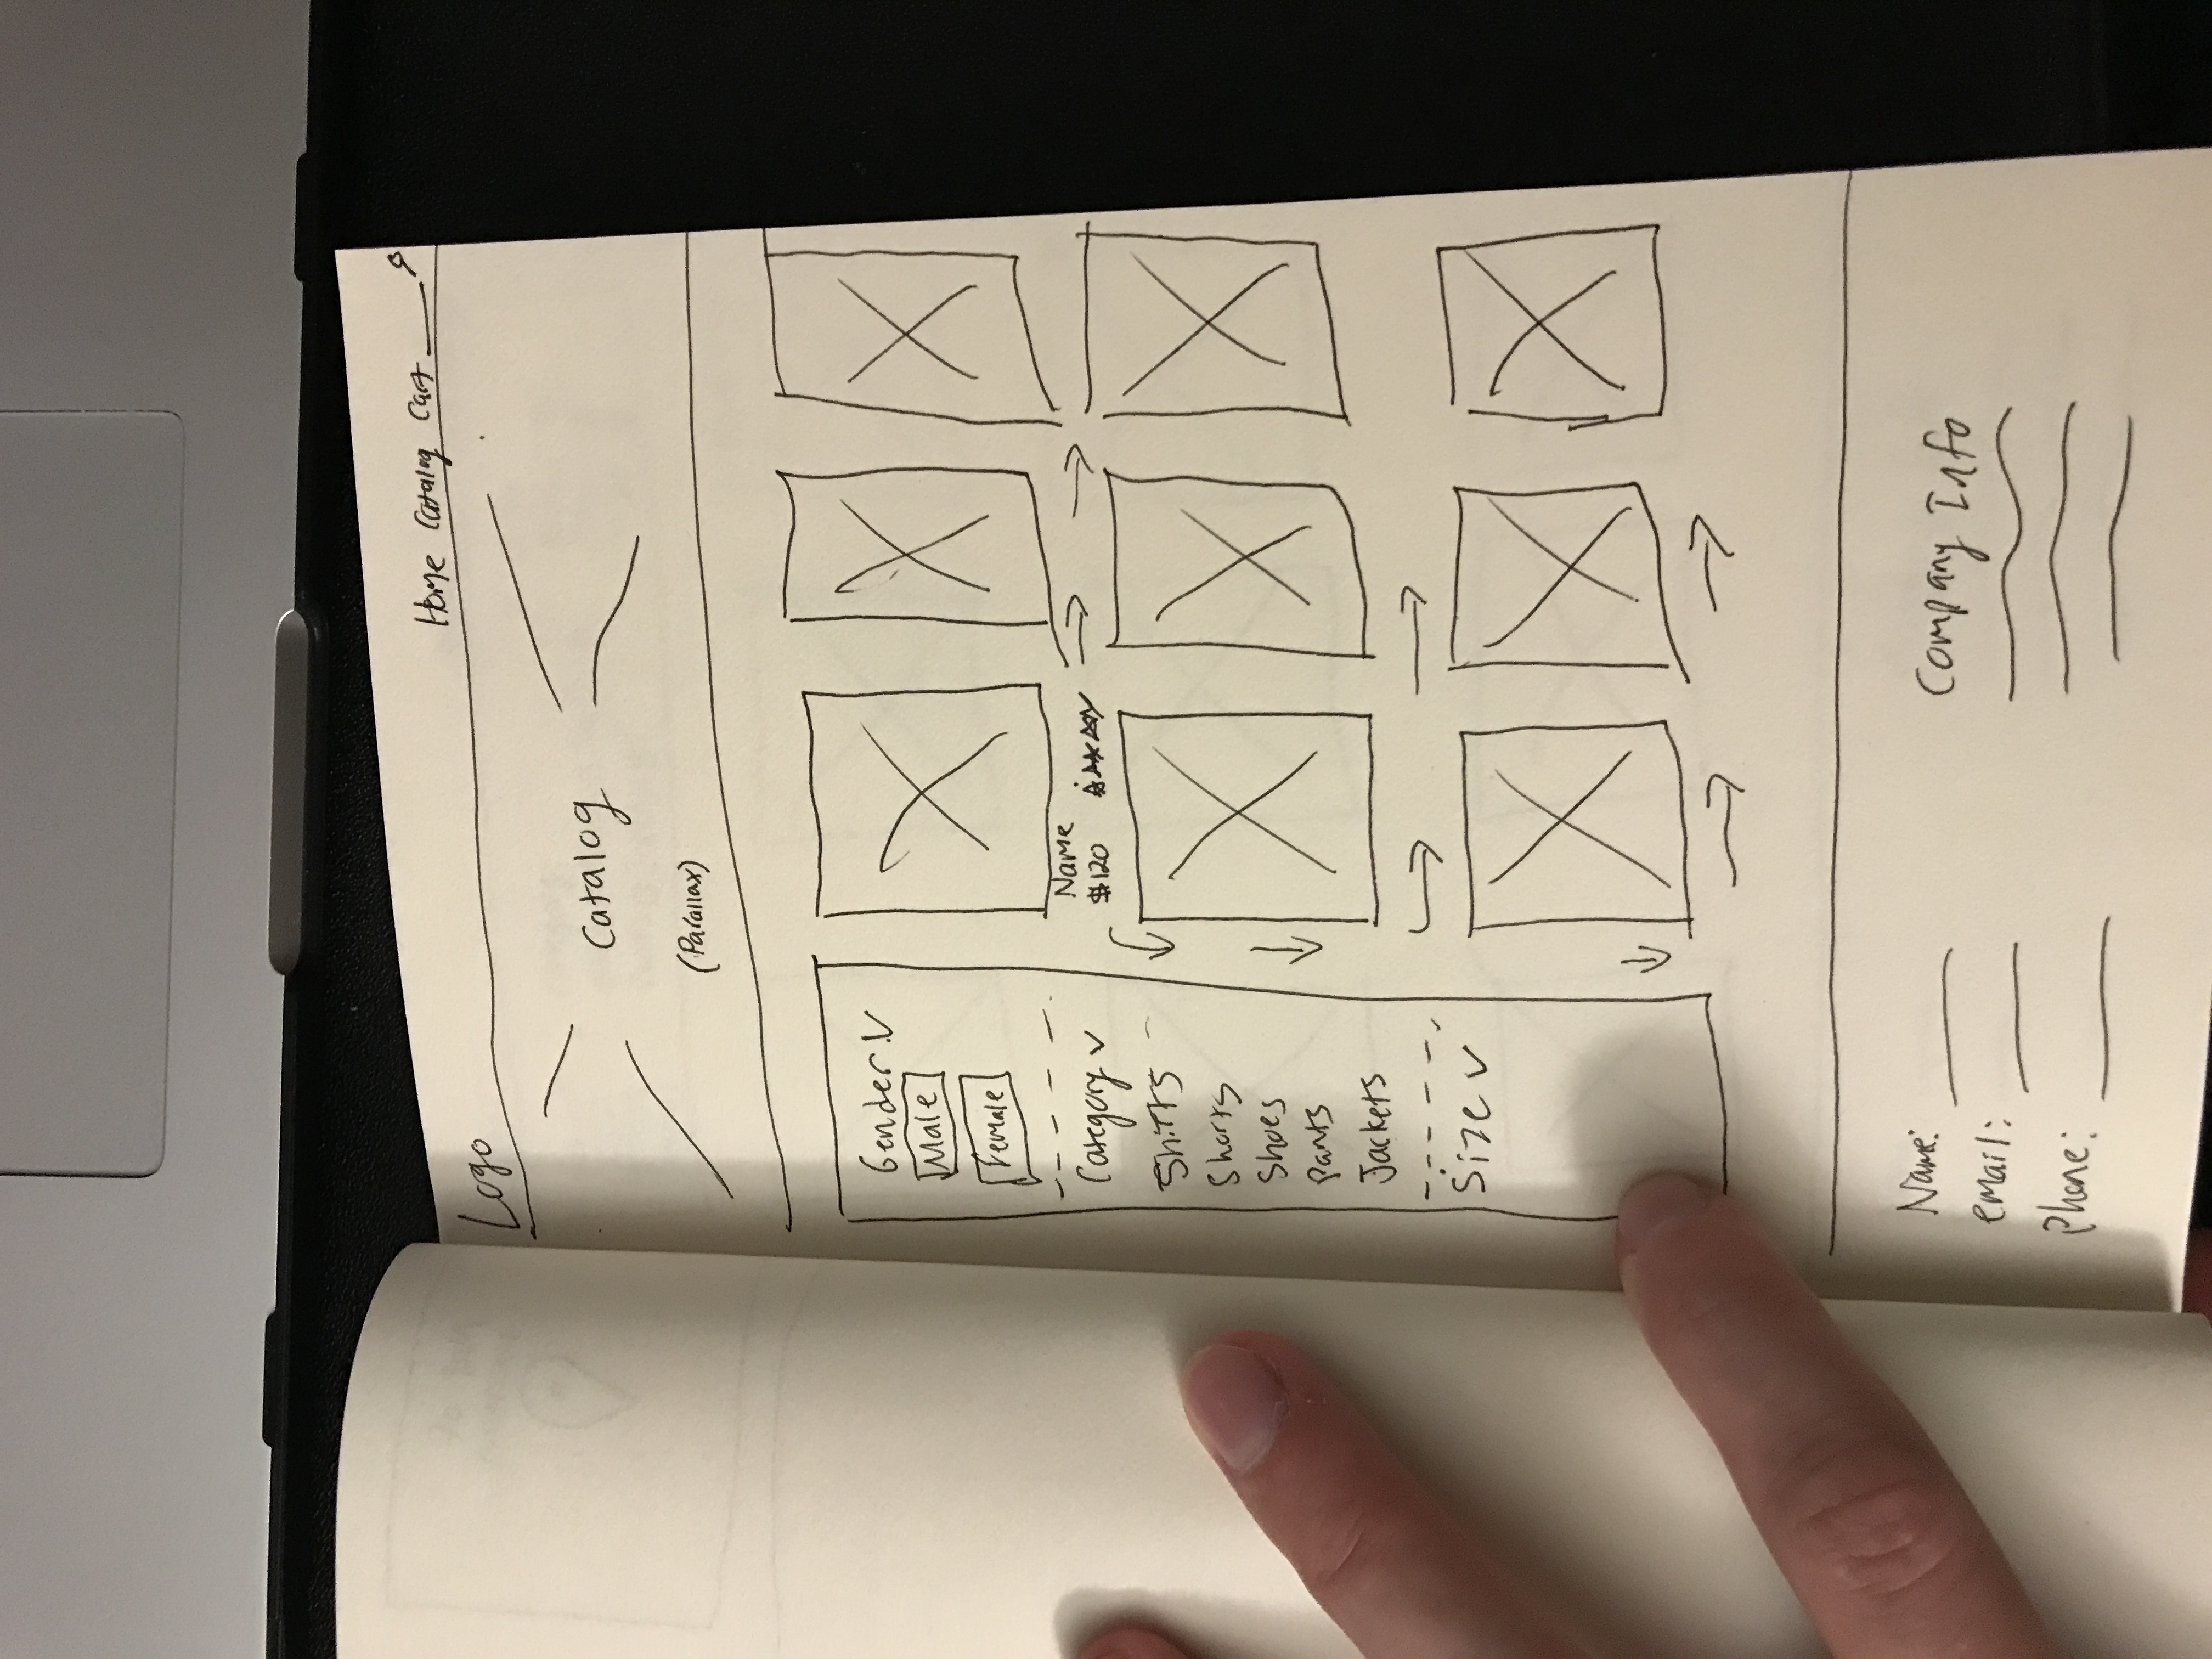 Logo
Home Catalog Cart
Catalog
(Parallax)
Gender:
Male
Female
Category
Shirts
Shorts
Shoes
Pants
Jackets
Size
Name
$120
Name:
email:
Phone:
Company Info